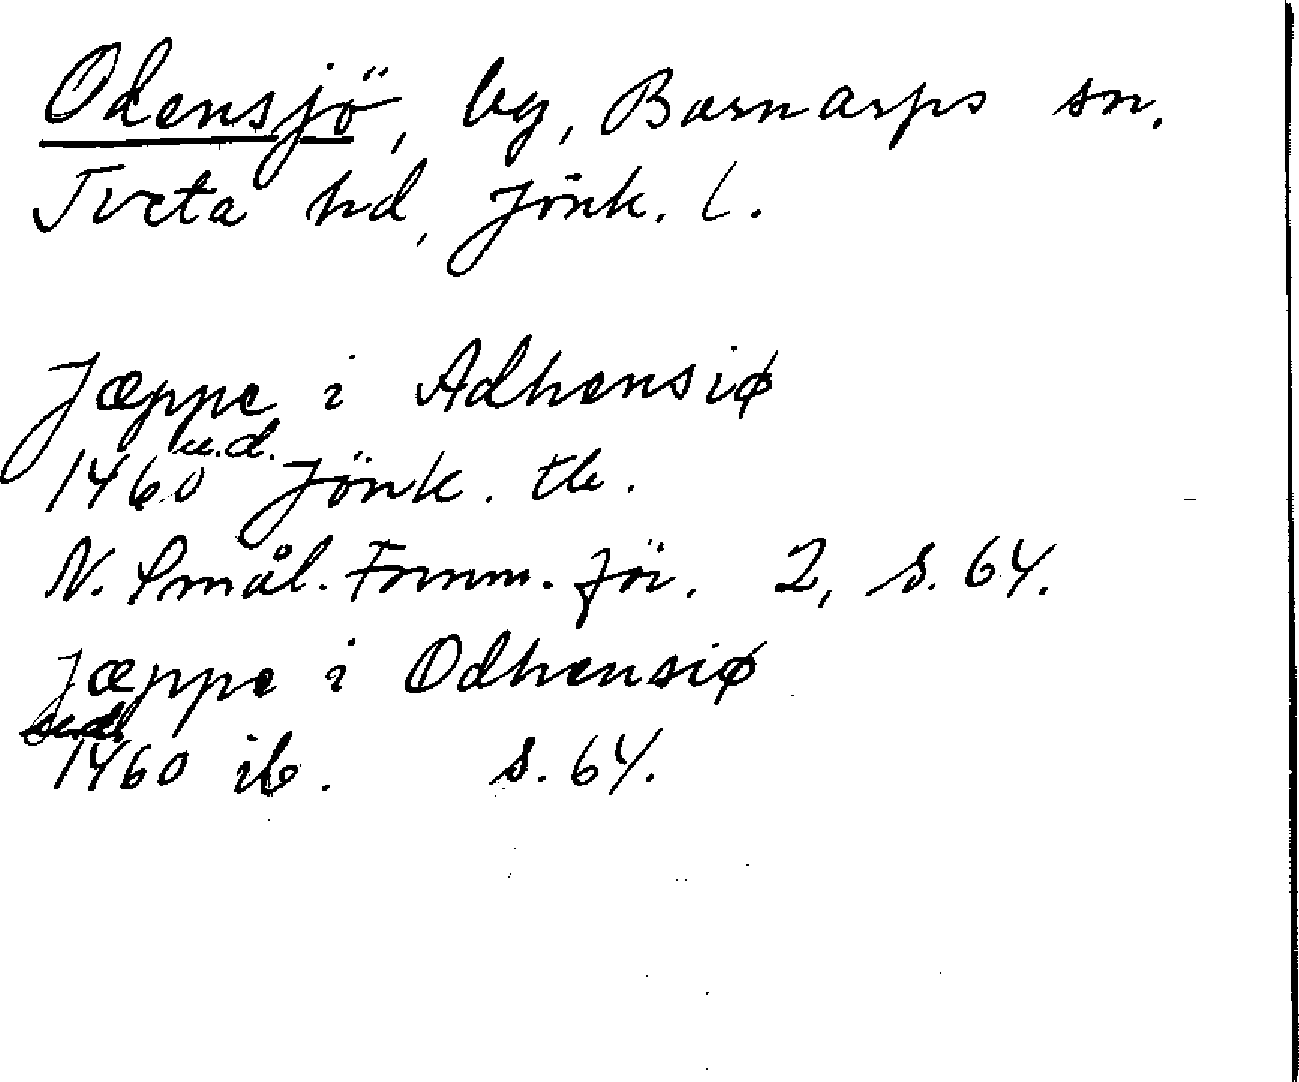 Odensjö, by, Barnarps sn.
Tveta hd, Jönk. l.
Jæppe i Adhensiø
u.d.
1460 Jönk. tb.
N. Smål. Fornm.för. 2, s. 64.
Jæppe i Odhensiø
1460 ib. s. 64.